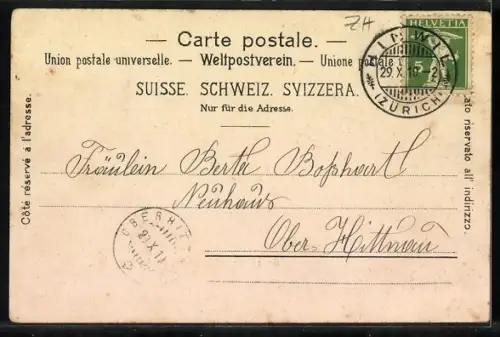 ZH
— Carte postale. —
Union postale universelle. — Weltpostverein. — Unione postale
SUISSE. SCHWEIZ. SVIZZERA.
Nur für die Adresse.
HELVETIA
5
29.X.10
(ZÜRICH)
Côté réservé à l'adresse.
lato riservato all' indirizzo.
Fräulein Bertha Boßhart
Neuhaus
Ober-Hittnau
OBERHIT
29.X.10